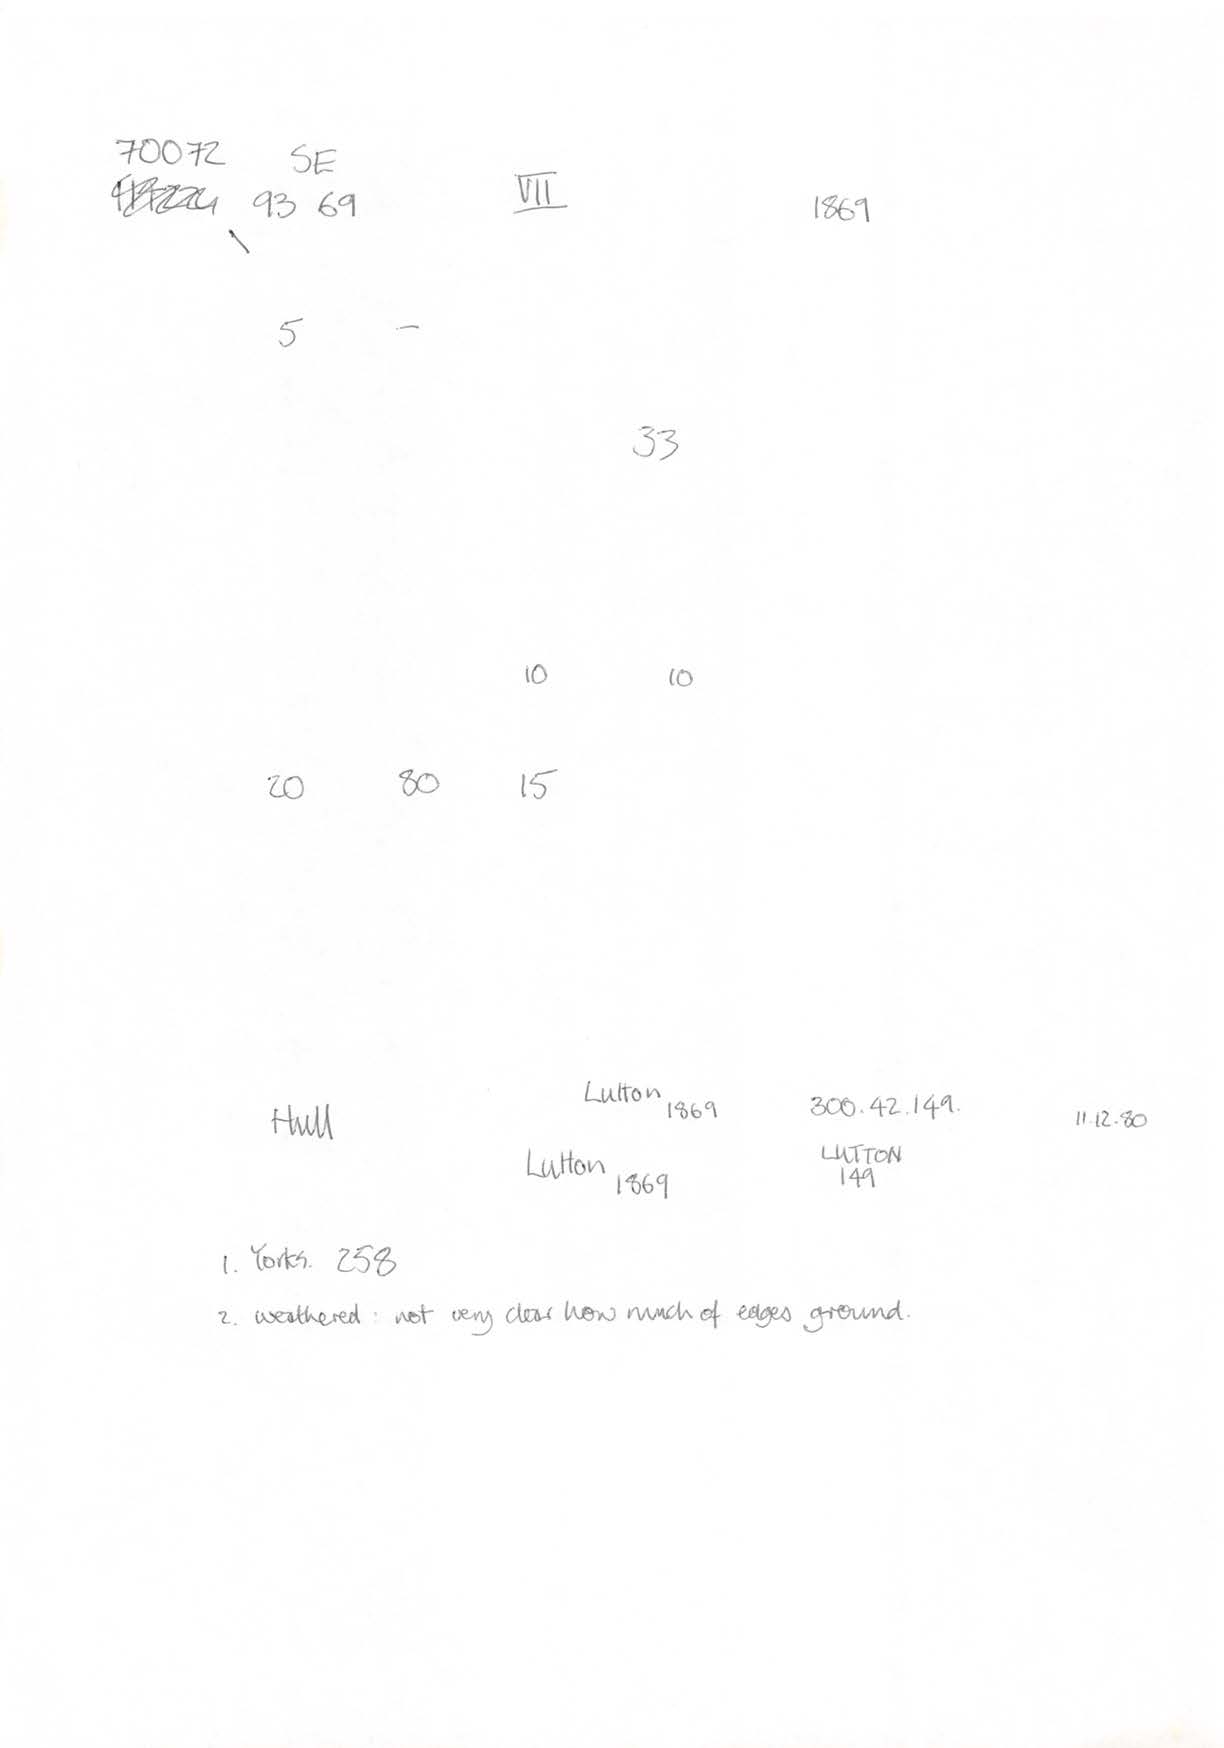 70072 SE
93 69 VII 1869
5 -
33
10 10
20 80 15
Hull Lutton 1869 300.42.149. 11.12.80
Lutton 1869 LUTTON
149
1. Yorks. 258
2. weathered : not very clear how much of edges ground.